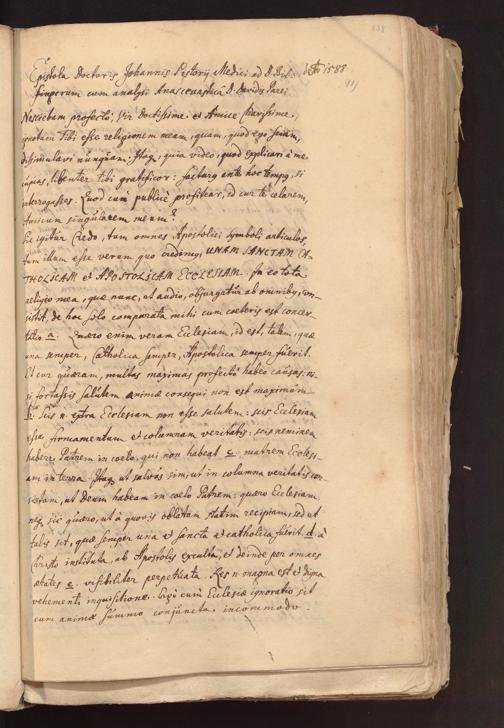 Epistola Doctoris Johannis Pistorij Medici ad D. 1588
Simperum cum analysi Anascevastica D. Davidis Parei
Nesciebam profectò, Vir Doctissime et Amice Charissime,
ignotam Tibi esse religionem meam, quam, quod ego sciam,
dissimulavi nunquam; Itaq, quia video, quod explicari à me
cupias, libenter Tibi gratificor: facturus ante hoc tempus, si
interrogasses. Quod cum publicè profitear, id cur te celarem,
Amicum singularem meum?
Sic igitur Credo, tum omnes Apostolici symboli articulos,
tum illum esse verum quo credimus, UNAM SANCTAM CA-
THOLICAM et APOSTOLICAM ECCLESIAM. In eo tota
religio mea, quæ nunc, ut audio, obiurgatur ab omnibus, con-
sistit, de hoc solo comparata mihi cum cæteris est concer-
tatio a. Quæro enim veram Ecclesiam, id est, talem, quæ
una semper, Catholica semper, Apostolica semper fuerit.
Et cur quæram, multas maximas profectò habeo causas, ni-
si fortassis salutem animæ consequi non est maximum
b. Scis n. extra Ecclesiam non esse salutem: scis Ecclesiam
esse firmamentum et columnam veritatis: scis neminem
habere Patrem in coelo, qui non habeat c. matrem Ecclesi-
am in terra. Itaq ut salvus sim, ut in columna veritatis con-
sistam, ut Deum habeam in coelo Patrem: quæro Ecclesiam.
neq sic quæro, ut à quovis oblatam statim recipiam, sed ut
talis sit, quæ semper una et sancta et catholica fuerit d. à
Christo instituta, ab Apostolis exculta, et deinde per omnes
ætates e. visibiliter perpetuata. Res n. magna est et digna
vehementi inquisitione. Ergò cum Ecclesiæ ignoratio sit
cum animæ summo conjuncta incommodo